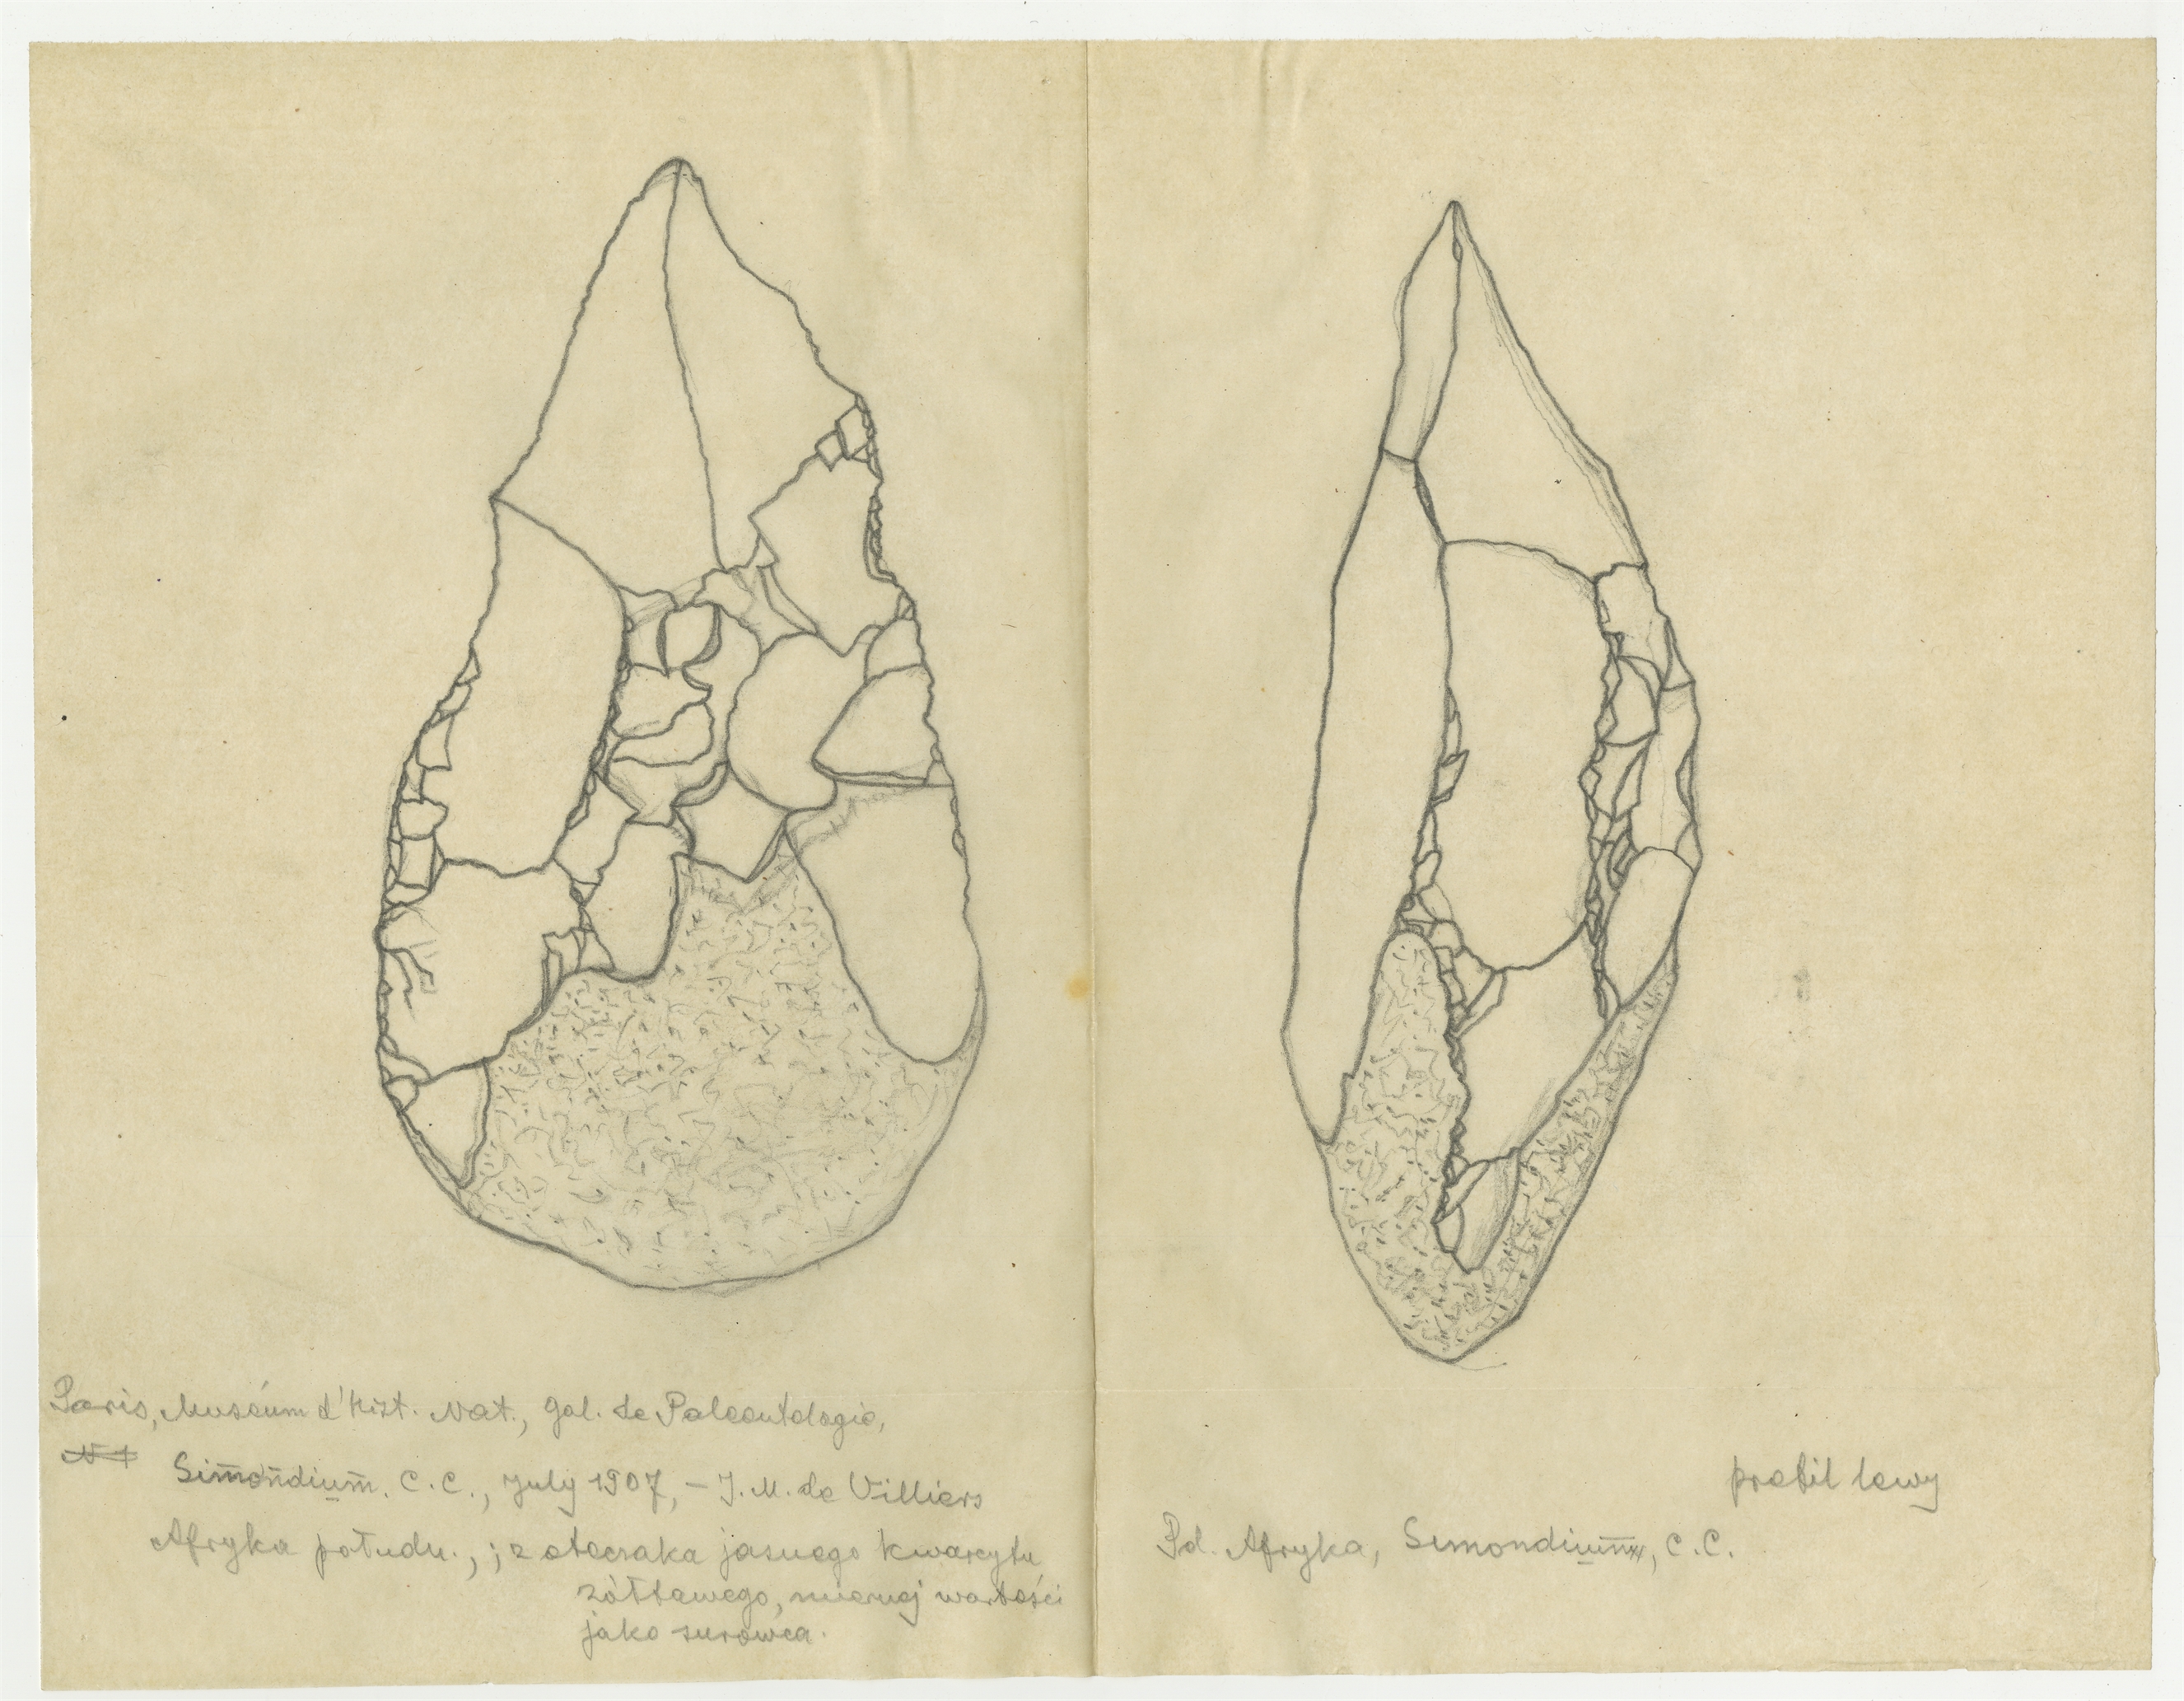 Paris, Muséum d'Hist. Nat., gal. de Paleontologie,
Simondium. C.C., July 1907, – J. M. de Villiers
Afryka połudn., ; z otoczaka jasnego kwarcytu
żółtawego, miernej wartości
jako surowca.
profil lewy
Pd. Afryka, Simondium, C.C.